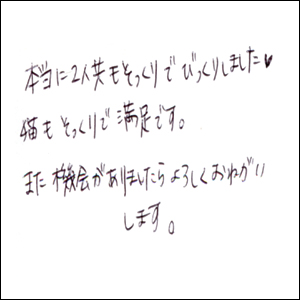 本当に2人共そっくりでびっくりしました♥
猫もそっくりで満足です。
また機会がありましたらよろしくおねがい
します。